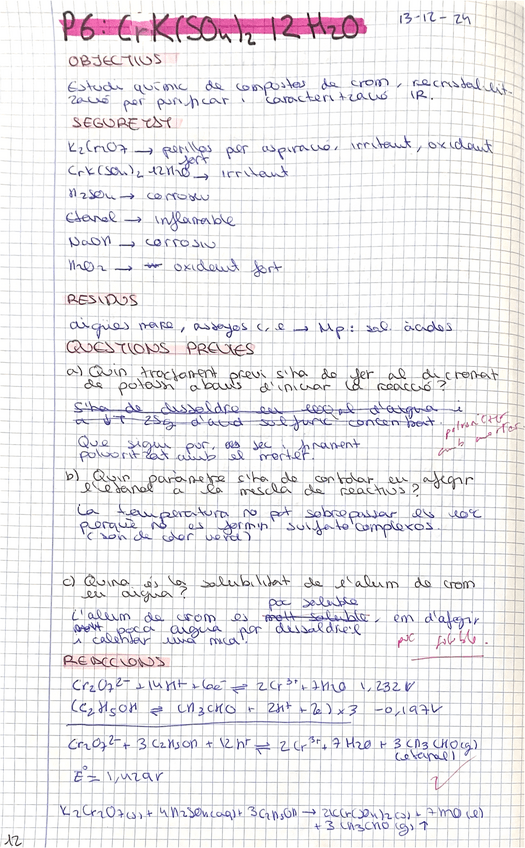 P6: CrK(SO4)2 12H2O
13-12-24
OBJECTIUS
Estudi químic de compostos de crom, recristal·lit-
zació per purificar i caracterització IR.
SEGURETAT
K2Cr2O7 → perillós per aspiració, irritant, oxidant
fort
CrK(SO4)2·12H2O → irritant
H2SO4 → corrosiu
Etanol → inflamable
NaOH → corrosiu
H2O2 → oxidant fort
RESIDUS
aigües mare, assajos c, e → Mp: sol. àcides
QÜESTIONS PRÈVIES
a) Quin tractament previ s'ha de fer al dicromat
de potassi abans d'iniciar la reacció?
S'ha de dissoldre en 100ml d'aigua i
25g d'àcid sulfúric concentrat.
polvoritzar
amb morter.
Que sigui pur, sec i finament
polvoritzat amb el morter.
b) Quin paràmetre s'ha de controlar en afegir
l'etanol a la mescla de reactius?
La temperatura no pot sobrepassar els 40ºC
perquè no es formin sulfatocomplexos.
(són de color verd)
c) Quina és la solubilitat de l'alum de crom
en aigua?
poc soluble
L'alum de crom es molt soluble, em d'afegir
poca aigua per dissoldre'l
i calentar una mica!
poc soluble.
REACCIONS
Cr2O7²⁻ + 14H⁺ + 6e⁻ ⇌ 2Cr³⁺ + 7H2O 1,232V
(C2H5OH ⇌ CH3CHO + 2H⁺ + 2e⁻) × 3 -0,197V
Cr2O7²⁻ + 3C2H5OH + 12H⁺ ⇌ 2Cr³⁺ + 7H2O + 3CH3CHO(g)
(etanal)
E° = 1,429V
K2Cr2O7(s) + 4H2SO4(aq) + 3C2H5OH → 2KCr(SO4)2(s) + 7H2O(l)
+ 3CH3CHO(g) ↑
12